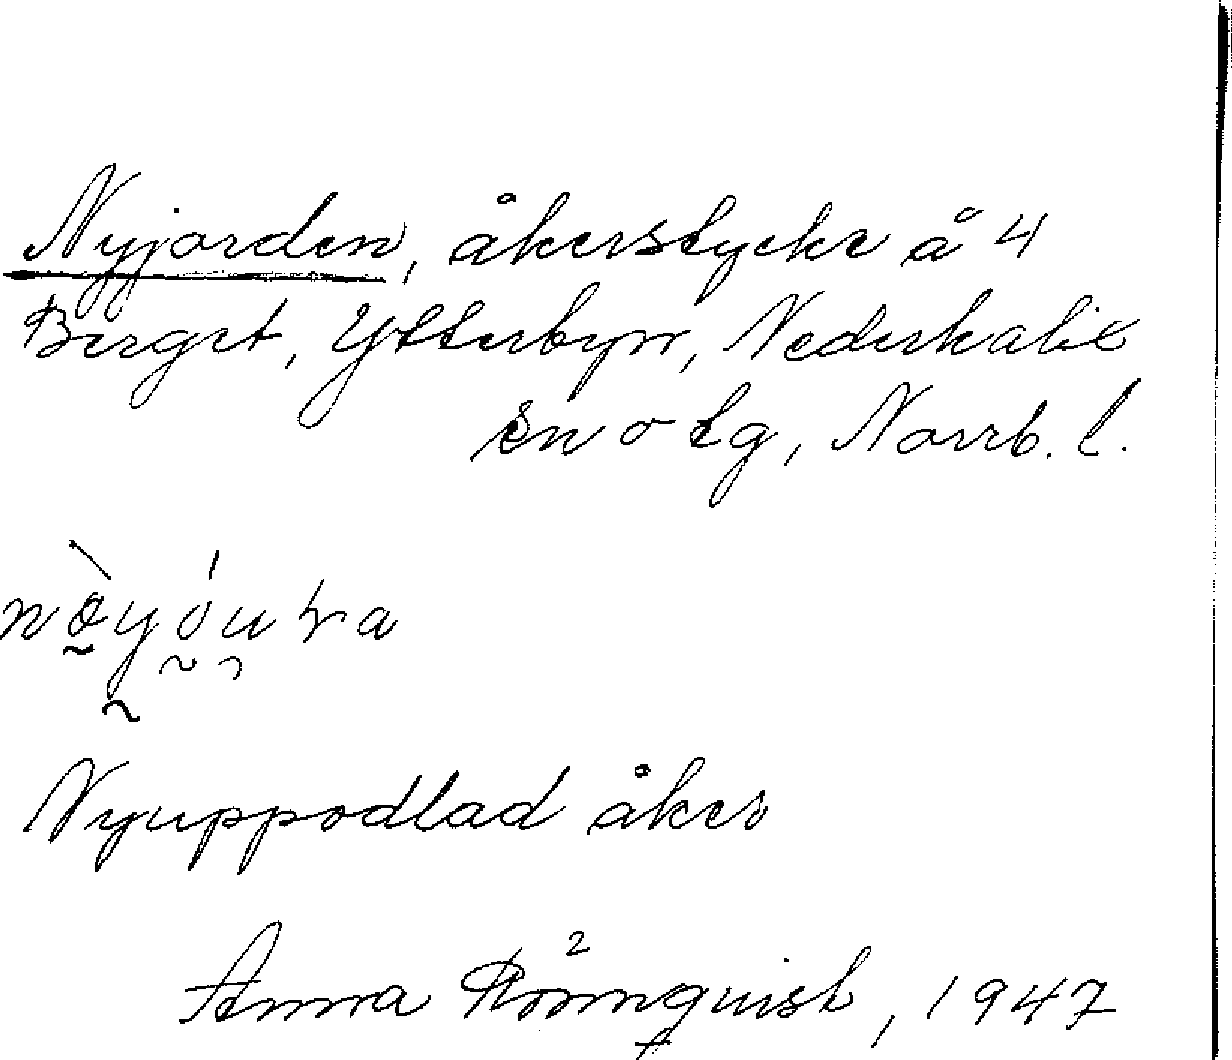 Nyjorden, åkerstycke å 4
Berget, Ytterbyn, Nederkalix
sn o tg, Norrb. l.
Nyuppodlad åker
Anna Rönnquist, 1947